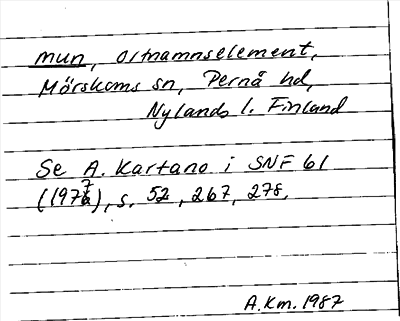 mun, ortnamnselement,
Mörskoms sn, Pernå hd,
Nylands l. Finland
Se A. Kartano i SNF 61
(1977), s. 52, 267, 278.
A.Km. 1987